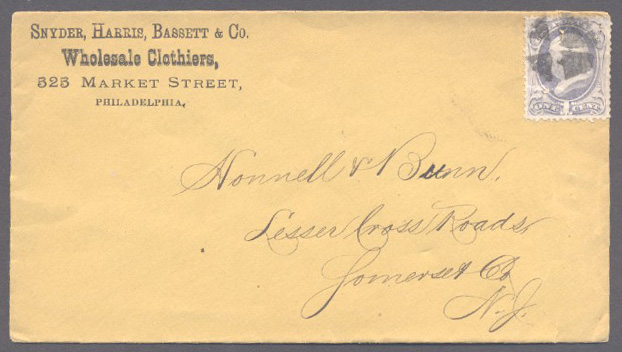 SNYDER, HARRIS, BASSETT & CO.
Wholesale Clothiers,
525 MARKET STREET,
PHILADELPHIA,
Nonnell & Bunn.
Lesser Cross Roads
Somerset Co
N.J.
ONE CENT